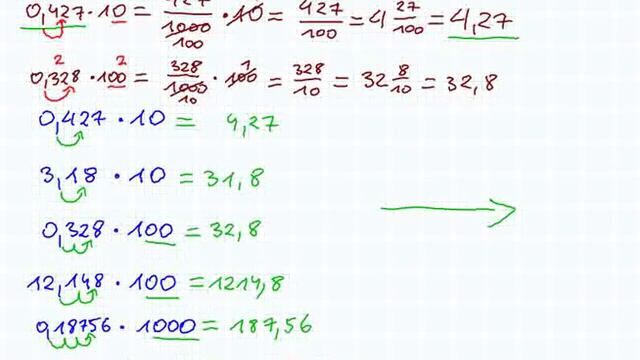 0,427 · 10 = 427/1000 · 10 = 427/100 = 4 27/100 = 4,27
0,328 · 100 = 328/1000 · 100 = 328/10 = 32 8/10 = 32,8
0,427 · 10 = 4,27
3,18 · 10 = 31,8
0,328 · 100 = 32,8
12,148 · 100 = 1214,8
0,18756 · 1000 = 187,56